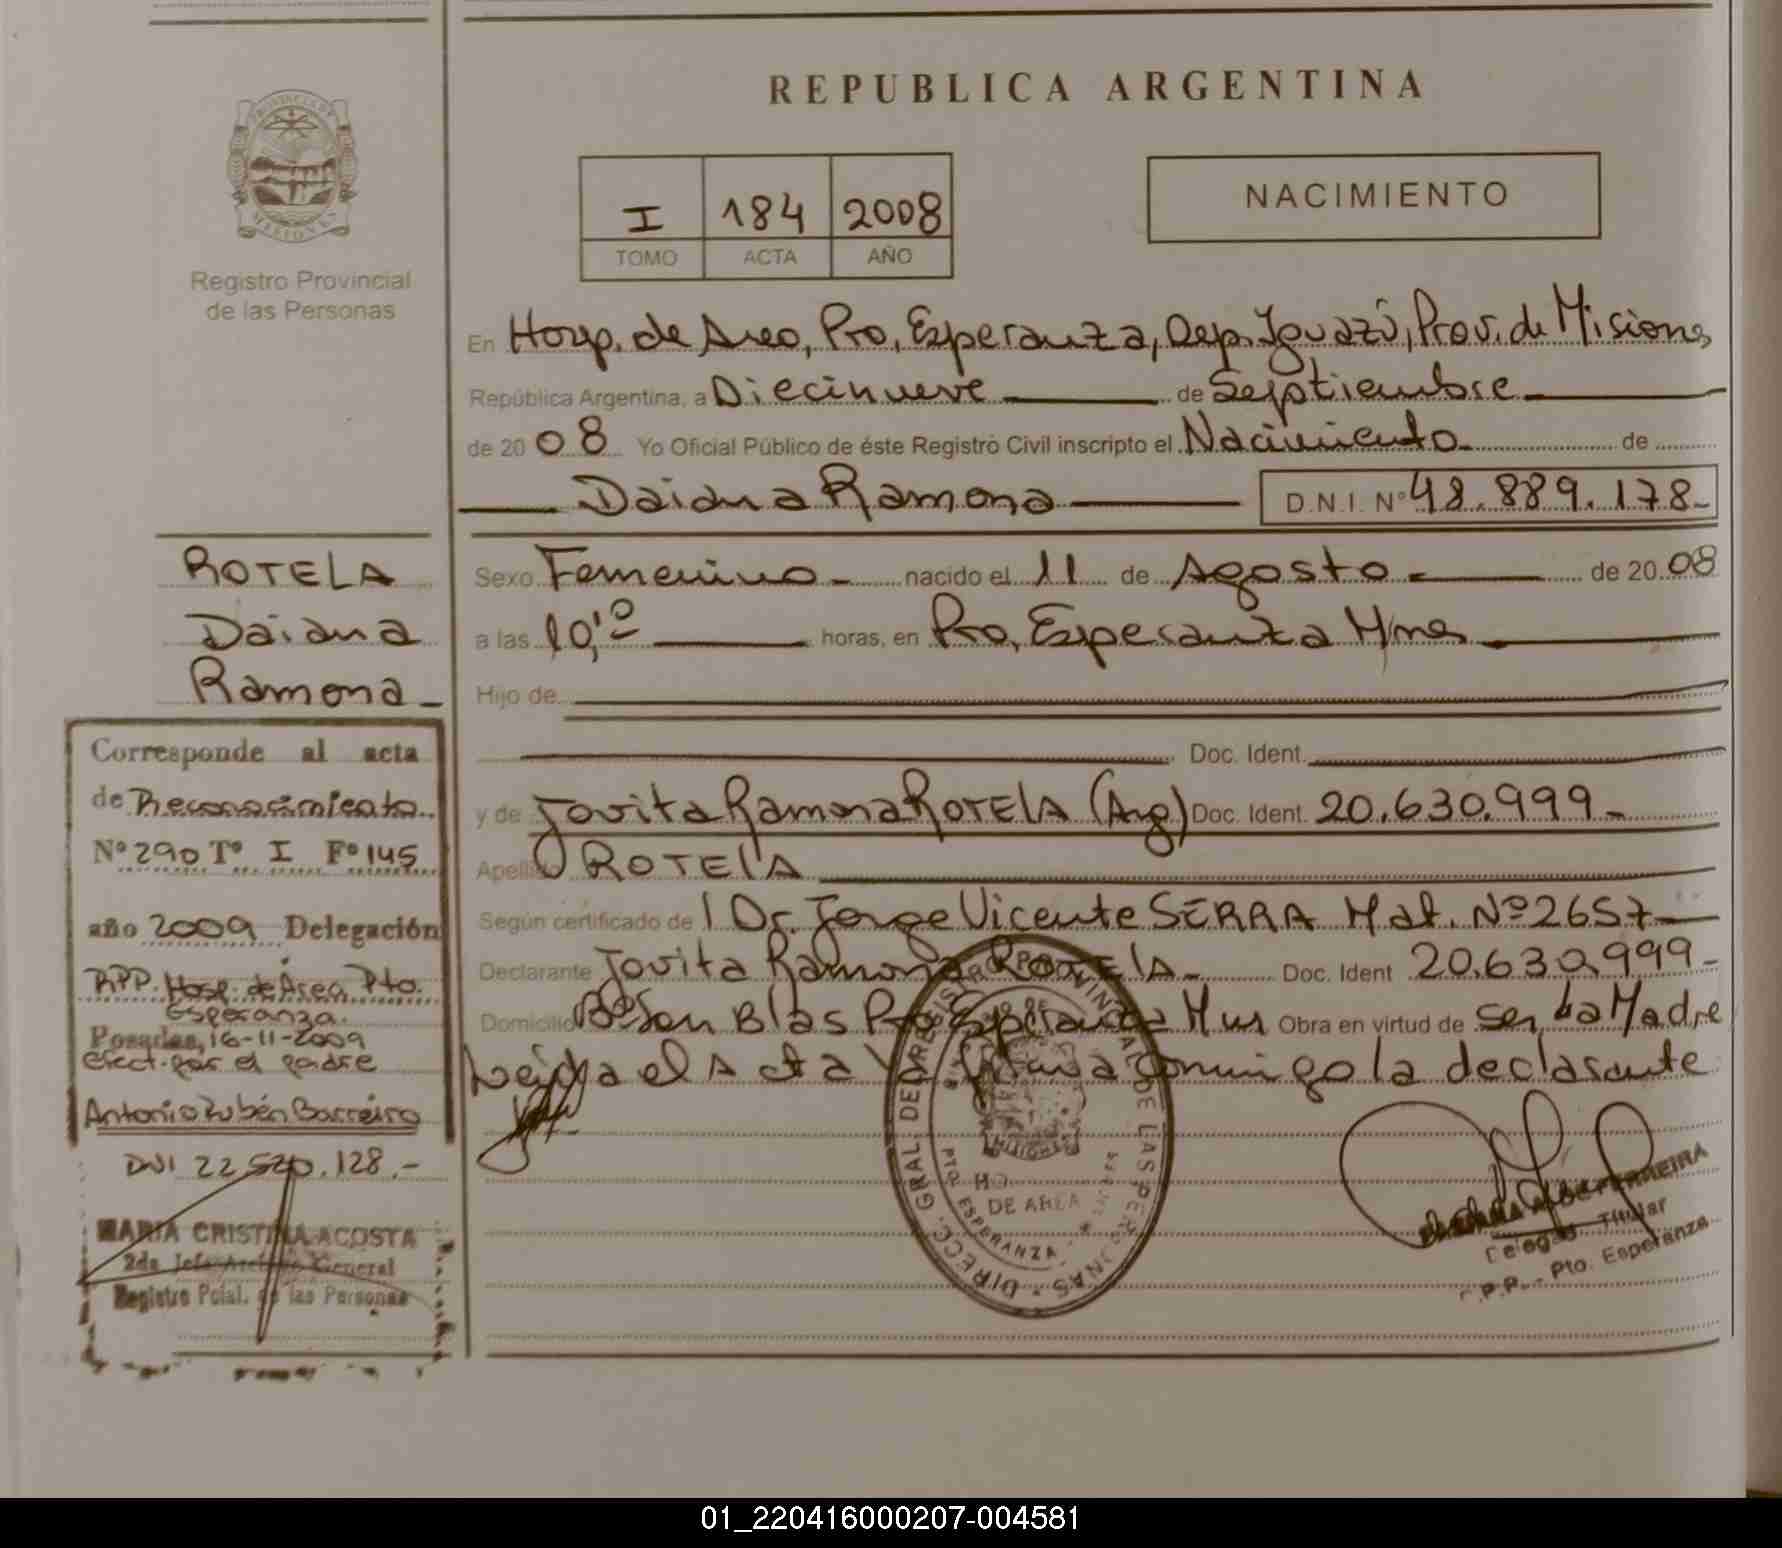 REPUBLICA ARGENTINA
PROVINCIA DE
MISIONES
Registro Provincial
de las Personas
I 184 2008
TOMO ACTA AÑO
NACIMIENTO
En Hosp. de Area, Pto. Esperanza, Dep. Iguazú, Prov. de Misiones
República Argentina, a Diecinueve de Septiembre
de 2008 Yo Oficial Público de éste Registro Civil inscripto el Nacimiento de
Daiana Ramona D.N.I. Nº 48.889.178-
Sexo Femenino - nacido el 11 de Agosto - de 2008
a las 10,10 horas, en Pto. Esperanza Mnes
Hijo de
Doc. Ident.
y de Jovita Ramona ROTELA (Arg) Doc. Ident. 20.630.999-
Apellido ROTELA
Según certificado de Dr. Jorge Vicente SERRA Mat. Nº 2657-
Declarante Jovita Ramona ROTELA - Doc. Ident 20.630.999-
Domicilio Bº San Blas Pto Esperanza Mnes Obra en virtud de ser La Madre
Leida el Acta firma conmigo la declarante
ROTELA
Daiana
Ramona -
Corresponde al acta
de Reconocimiento
Nº 290 Tº I Fº 145
año 2009 Delegación
RPP. Hosp. de Área Pto.
Esperanza.
Posadas, 16-11-2009
efect. por el padre
Antonio Rubén Barreiro
DNI 22.520.128.-
MARIA CRISTINA ACOSTA
2da Jefa Archivo General
Registro Pcial. de las Personas
DIRECC. GRAL. DEL REGISTRO PROVINCIAL DE LAS PERSONAS
MISIONES
DE AREA
PTO. ESPERANZA
FERREIRA
Delegad. Titular
R.P.P. - Pto. Esperanza
01_220416000207-004581